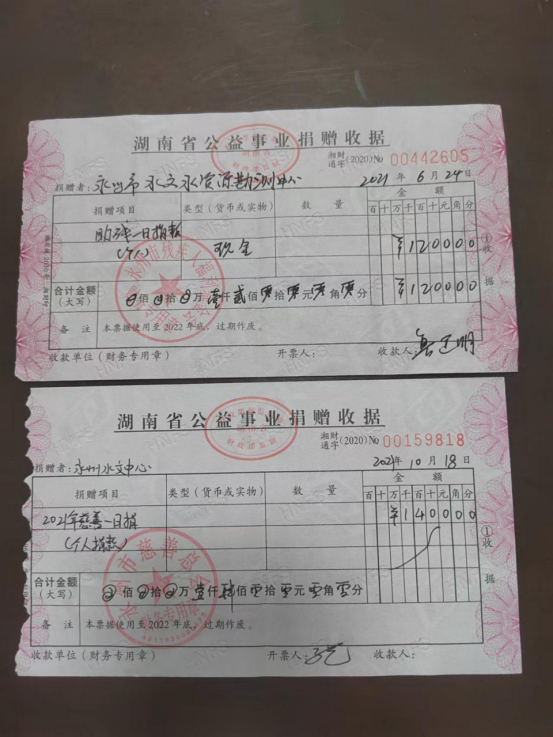 湖南省公益事业捐赠收据
湘财通字(2020)No 00442605
捐赠者:永州市水文水资源勘测中心 2021年6月24日
捐赠项目 类型(货币或实物) 数量 金额
百十万千百十元角分
助残一日捐款 现金 ¥120000
(个人)
合计金额(大写) 佰 拾 万壹仟贰佰零拾零元零角零分 ¥120000
①收据
备注 本票据使用至2022年底,过期作废。
收款单位(财务专用章) 开票人: 收款人:
湖南省公益事业捐赠收据
湘财通字(2020)No 00159818
捐赠者:永州水文中心 2021年10月18日
捐赠项目 类型(货币或实物) 数量 金额
百十万千百十元角分
2021年慈善一日捐 ¥140000
(个人捐款)
合计金额(大写) 佰 拾 万壹仟肆佰零拾零元零角零分
①收据
备注 本票据使用至2022年底,过期作废。
收款单位(财务专用章) 开票人: 收款人: